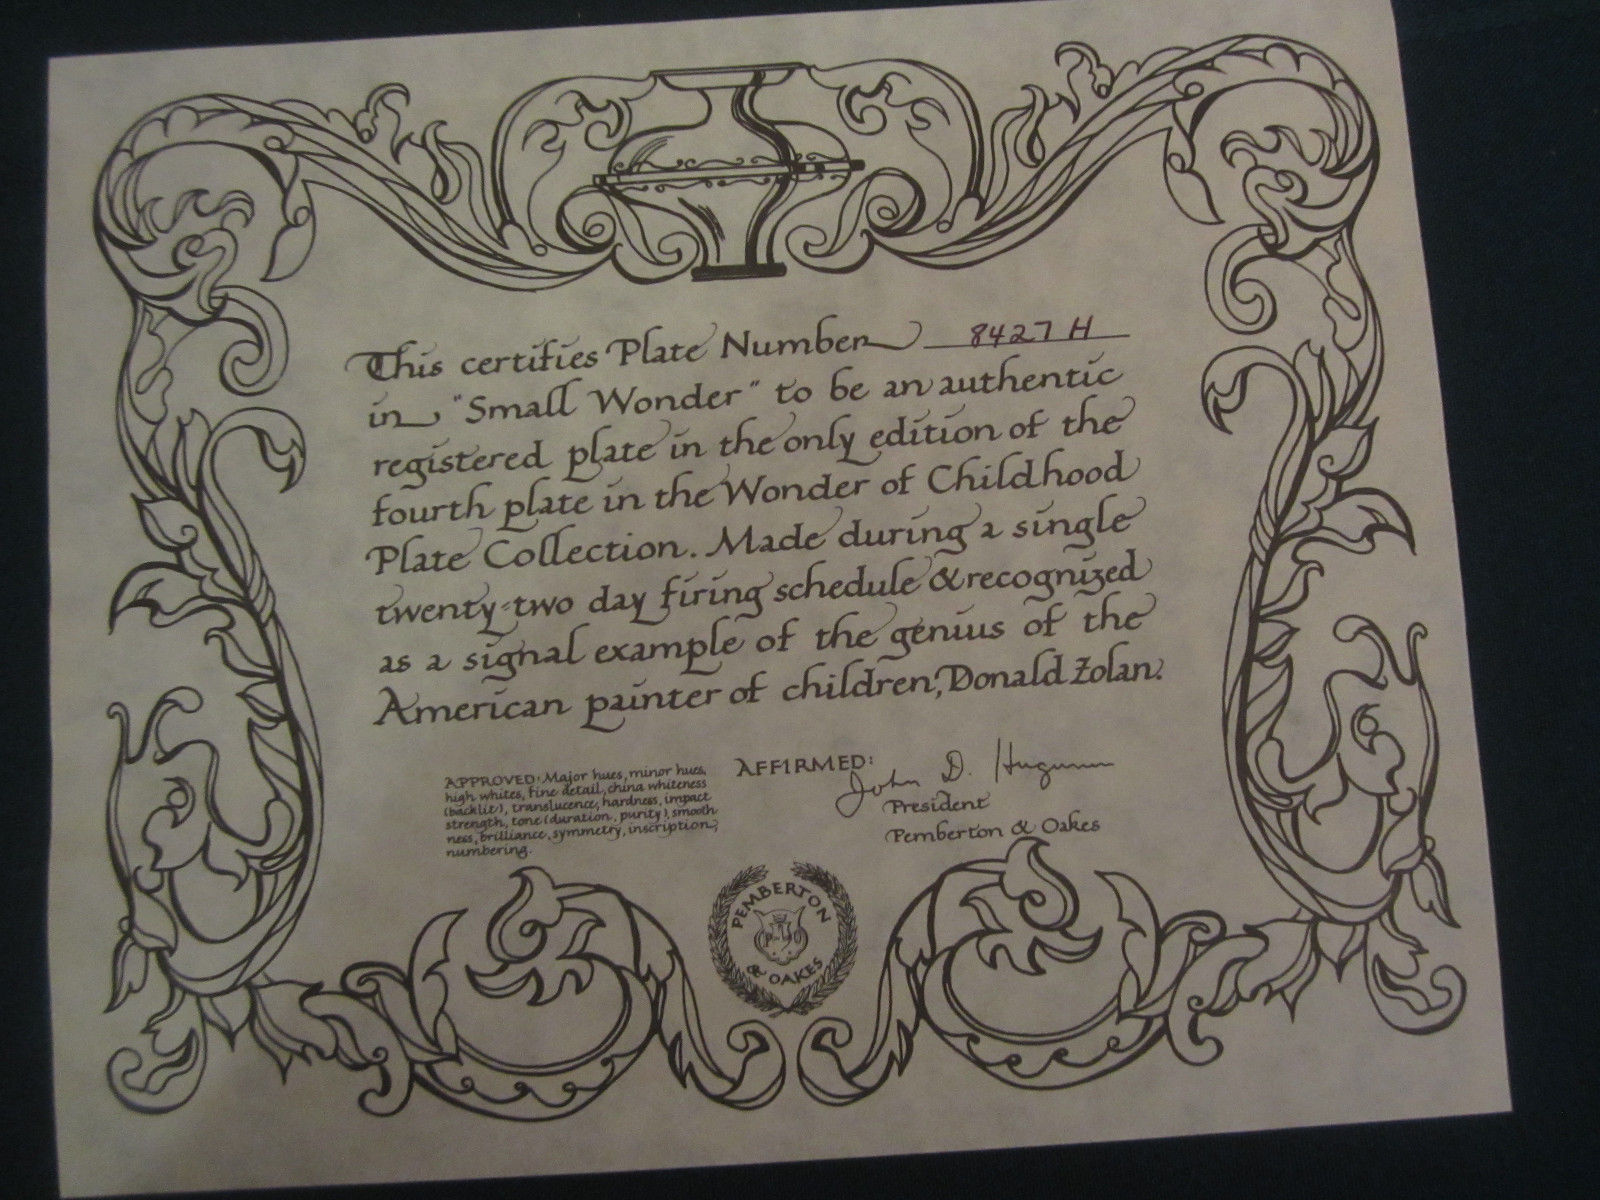 This certifies Plate Number 8427 H
in "Small Wonder" to be an authentic
registered plate in the only edition of the
fourth plate in the Wonder of Childhood
Plate Collection. Made during a single
twenty-two day firing schedule & recognized
as a signal example of the genius of the
American painter of children, Donald Zolan.
APPROVED: Major hues, minor hues,
high whites, fine detail, china whiteness
(backlit), translucence, hardness, impact
strength, tone (duration, purity), smooth-
ness, brilliance, symmetry, inscription,
numbering.
AFFIRMED: John D. Hugunin
President
Pemberton & Oakes
PEMBERTON
P & O
& OAKES